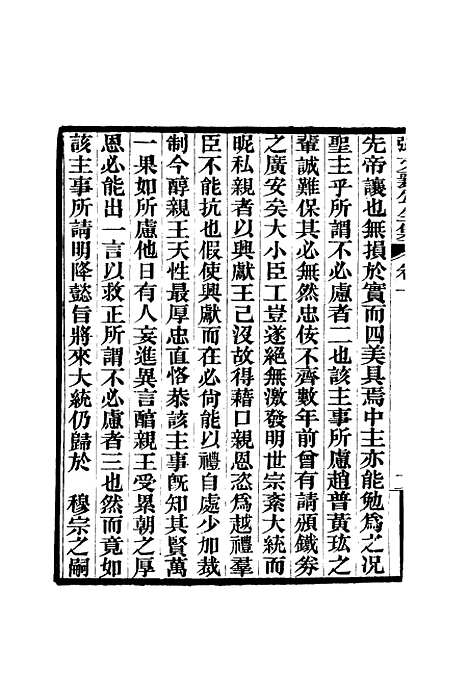 張文襄公全集 卷一
先帝讓也無損於實而四美具焉中主亦能勉爲之況
聖主乎所謂不必慮者二也該主事所慮趙普黃玹之
輩誠難保其必無然忠佞不齊數年前曾有請頒鐵券
之廣安矣大小臣工豈遂絕無激發明世宗紊大統而
昵私親者以興獻王已沒故得藉口親恩恣爲越禮羣
臣不能抗也假使興獻而在必尙能以禮自處少加裁
制今醇親王天性最厚忠直恪恭該主事旣知其賢萬
一果如所慮他日有人妄進異言醕親王受累朝之厚
恩必能出一言以救正所謂不必慮者三也然而竟如
該主事所請明降懿旨將來大統仍歸於 穆宗之嗣